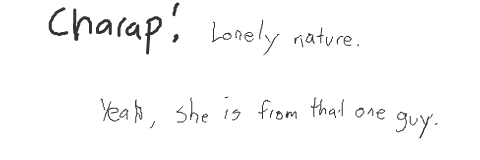 Charap! Lonely nature.
Yeah, she is from that one guy.